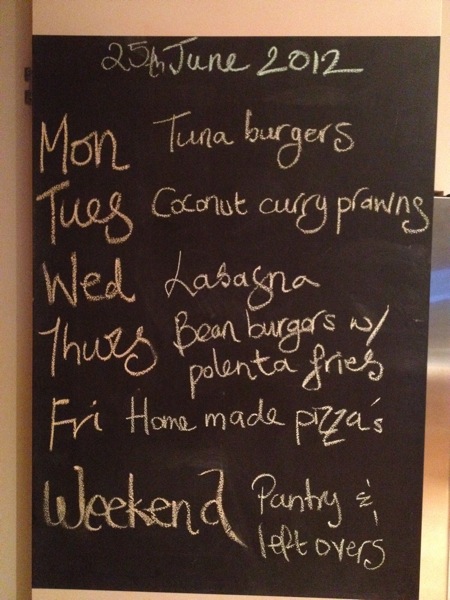 25th June 2012
Mon Tuna burgers
Tues Coconut curry prawns
Wed Lasagna
Thurs Bean burgers w/
polenta fries
Fri Home made pizza's
Weekend Pantry &
left overs